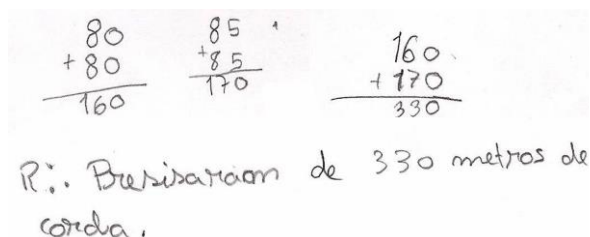 80
+ 80
160
85
+ 85
170
160
+ 170
330
R:. Bresisaraam de 330 metros de
corda.